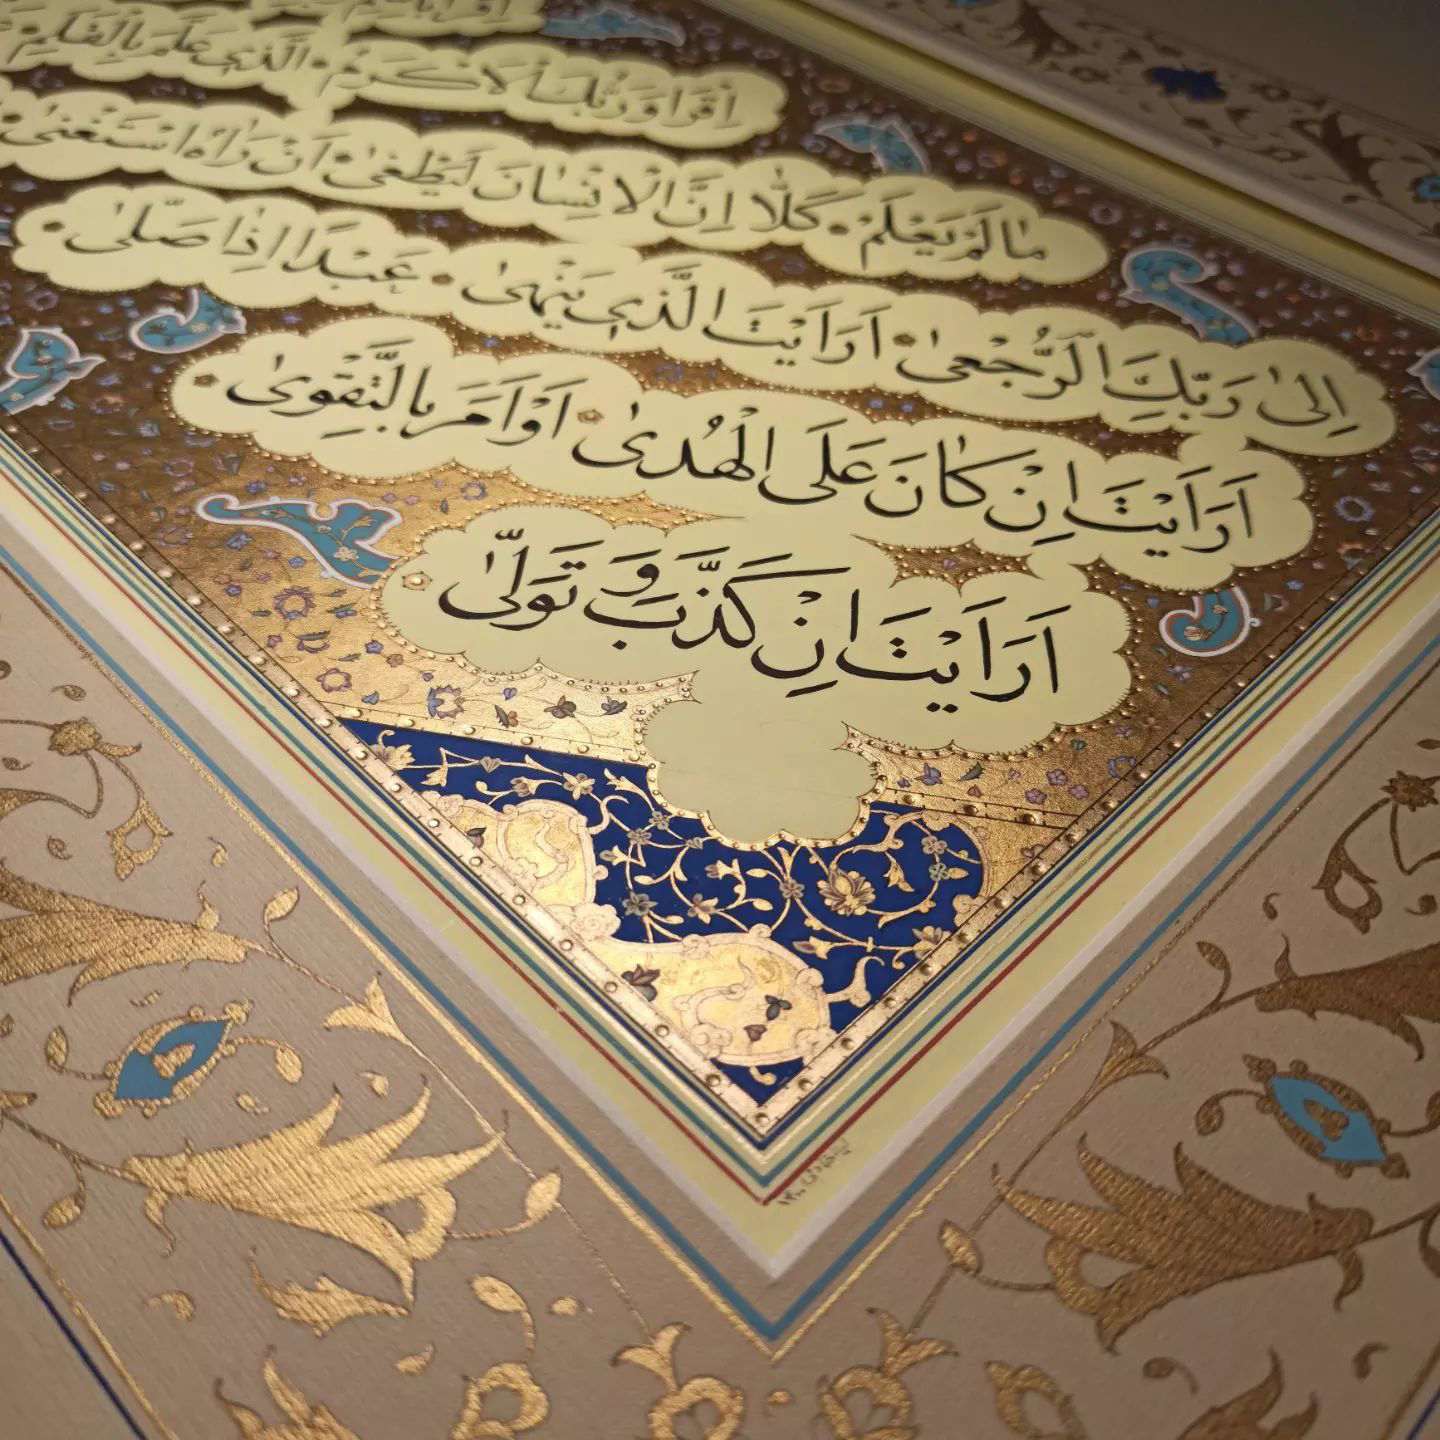 اِقْرَأْ وَرَبُّكَ الْاَكْرَمُ الَّذِي عَلَّمَ بِالْقَلَمِ
مَا لَمْ يَعْلَمْ كَلَّا اِنَّ الْاِنْسَانَ لَيَطْغىٰ اَنْ رَاٰهُ اسْتَغْنىٰ
اِلىٰ رَبِّكَ الرُّجْعىٰ اَرَاَيْتَ الَّذِي يَنْهىٰ عَبْدًا اِذَا صَلّىٰ
اَرَاَيْتَ اِنْ كَانَ عَلَى الْهُدىٰ اَوْ اَمَرَ بِالتَّقْوىٰ
اَرَاَيْتَ اِنْ كَذَّبَ وَ تَوَلّىٰ